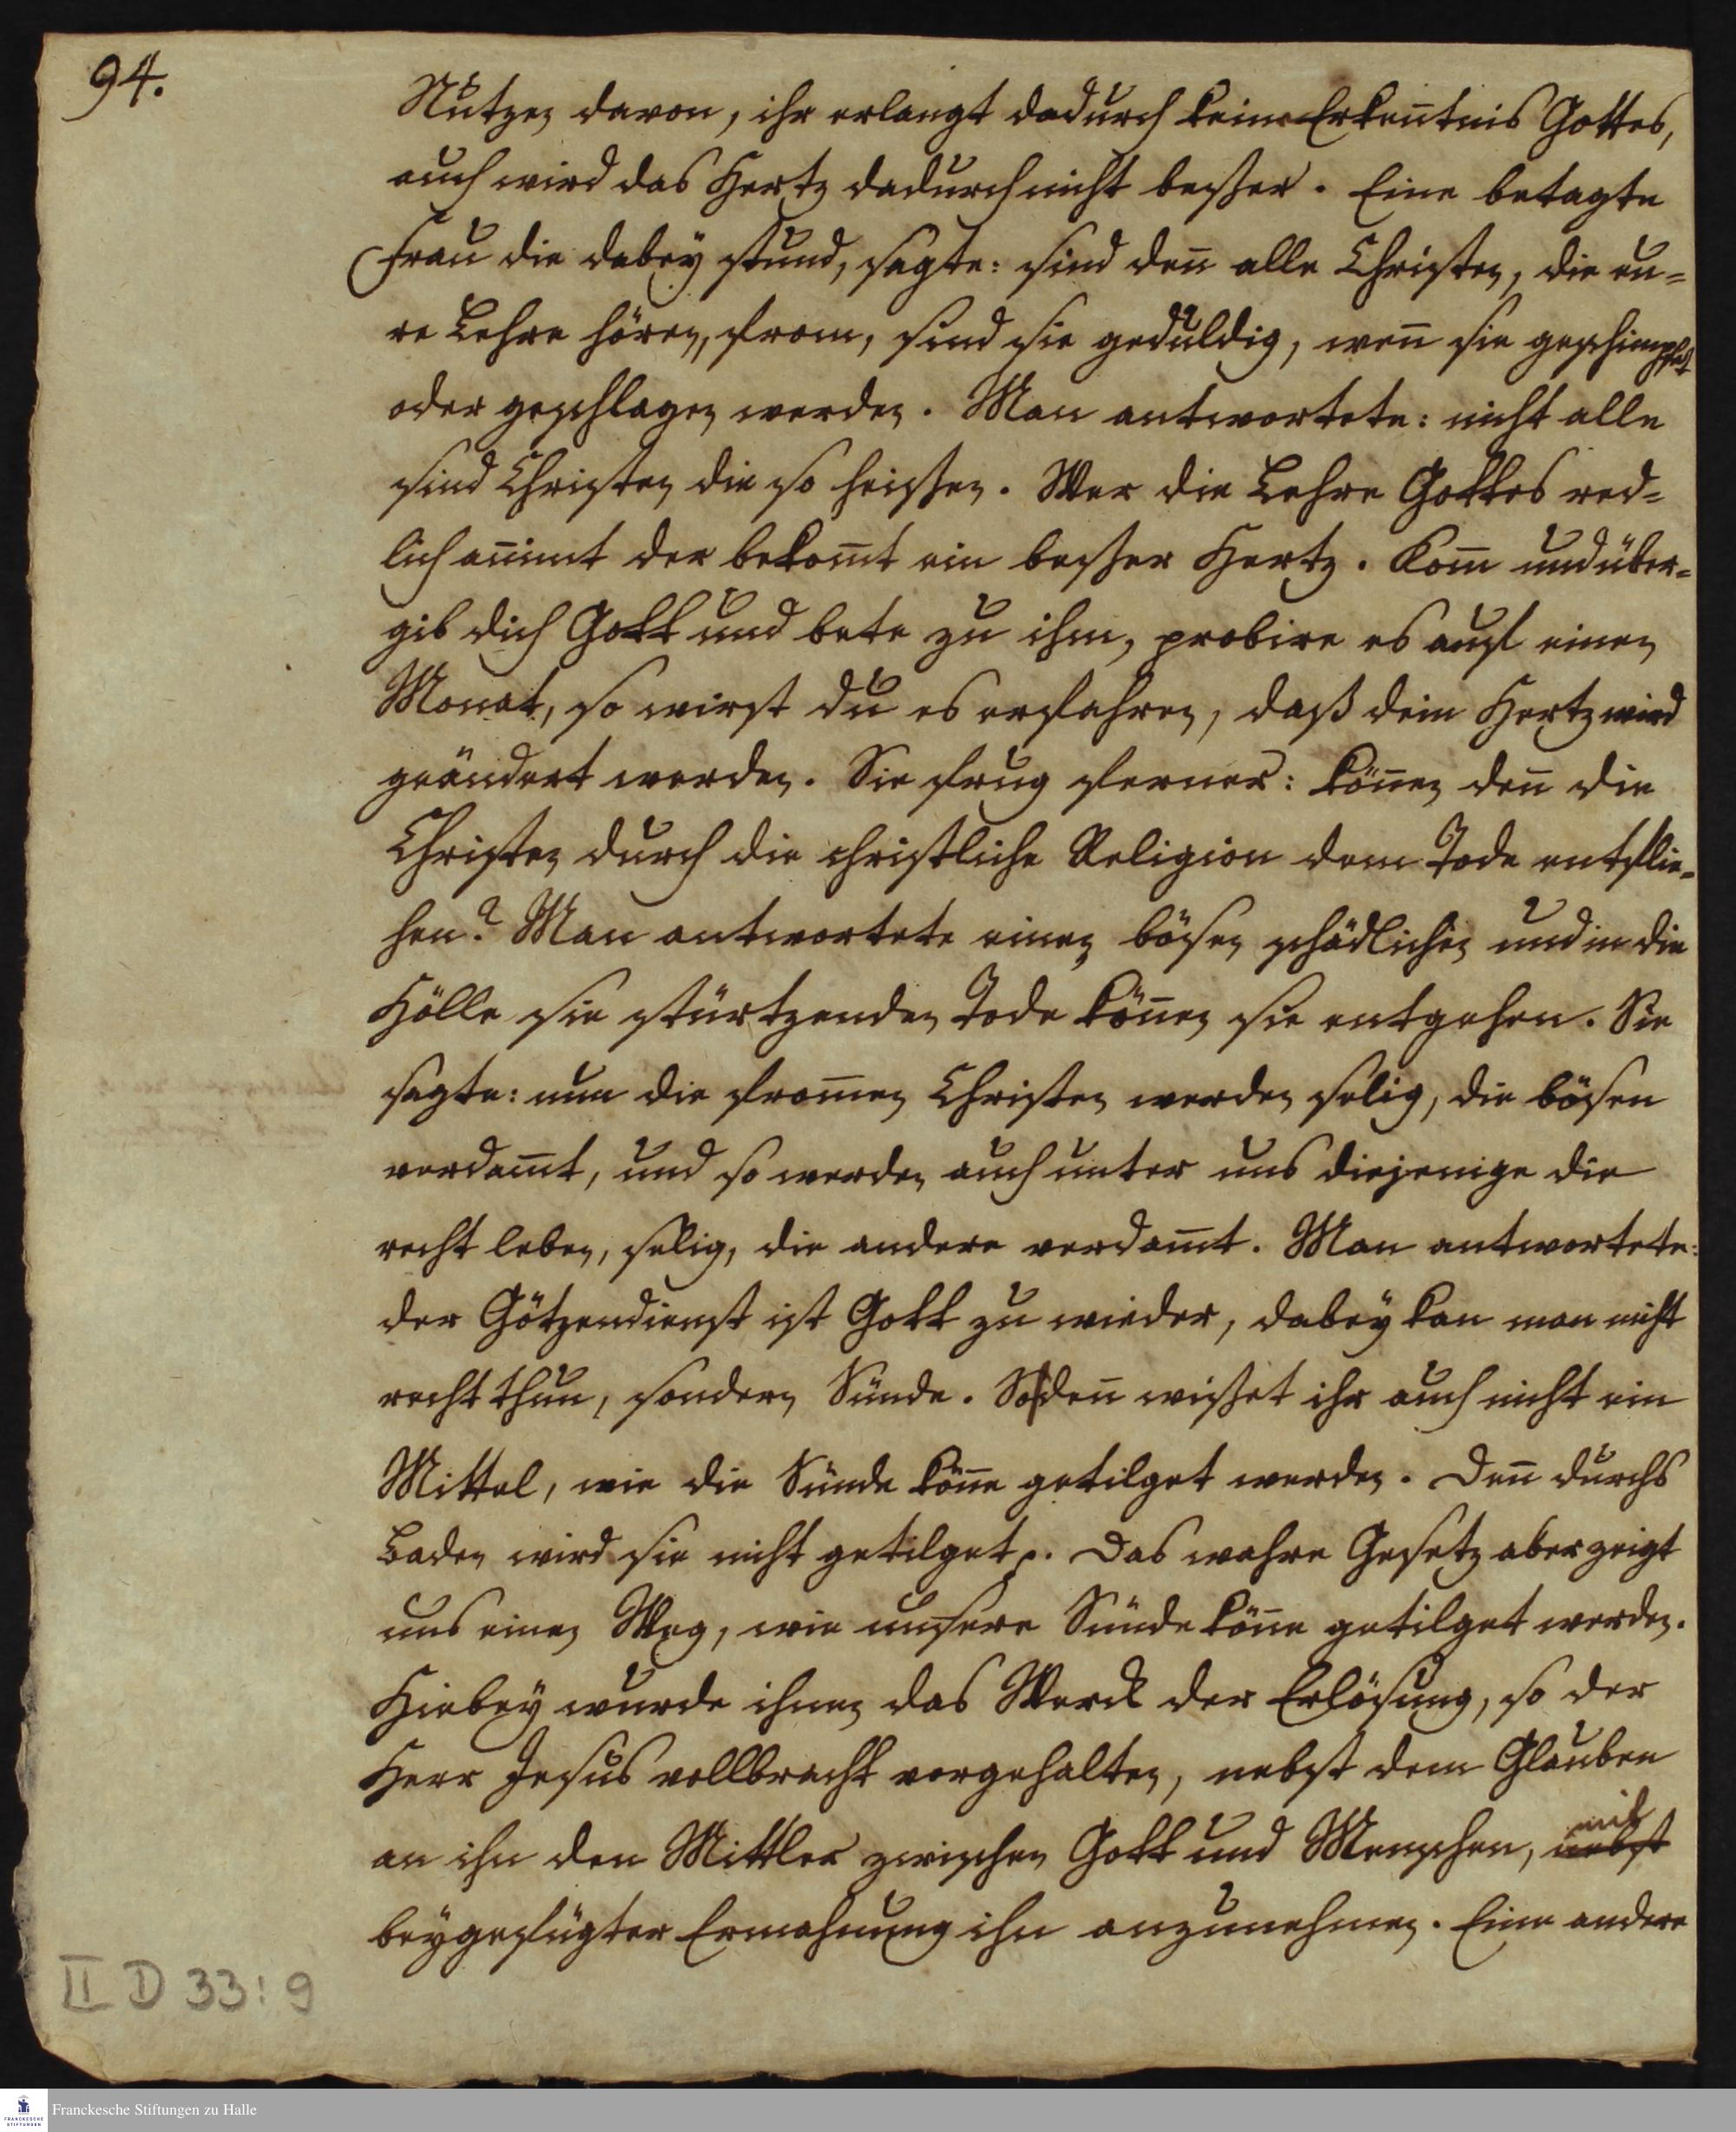 94.
Nutzen davon, ihr erlangt dadurch keine Erken̄tnis Gottes,
auch wird das Hertz dadurch nicht beßer. Eine betagte
Frau die dabey stund, sagte: sind den̄ alle Christen, die eu=
re Lehre hören, from, sind sie geduldig, wen̄ sie geschimpft
oder geschlagen werden. Man antwortete: nicht alle
sind Christen die so heißen. Wer die Lehre Gottes red=
lich an̄imt der bekom̄t ein beßer Hertz. Kom̄ und über=
gib dich Gott und bete zu ihm, probire es auf einen
Monat, so wirst du es erfahren, daß dein Hertz wird
geändert werden. Sie frug ferner: kön̄en den̄ die
Christen durch die christliche Religion dem Tode entflie=
hen? Man antwortete einen bösen schädlichen und in die
Hölle sie stürtzenden Tode kön̄en sie entgehen. Sie
sagte: nun die from̄en Christen werden selig, die bösen
verdam̄t, und so werden auch unter uns diejenige die
recht leben, selig, die andere verdam̄t. Man antwortete:
der Götzendienst ist Gott zu wieder, dabey kan man nicht
recht thun, sondern Sünde. Soden̄ wißet ihr auch nicht ein
Mittel, wie die Sünde kön̄e getilget werden. Den̄ durchs
Baden wird sie nicht getilget. Das wahre Gesetz aber zeigt
uns einen Weg, wie unsere Sünde kön̄e getilget werden.
Hiebey wurde ihnen das Werck der Erlösung, so der
Herr Jesus vollbracht vorgehalten, nebst dem Glauben
an ihn den Mittler zwischen Gott und Menschen, nebst mit
beygefügter Ermahnung ihn anzunehmen. Eine andere
II D 33:9
FRANCKESCHE STIFTUNGEN
Franckesche Stiftungen zu Halle